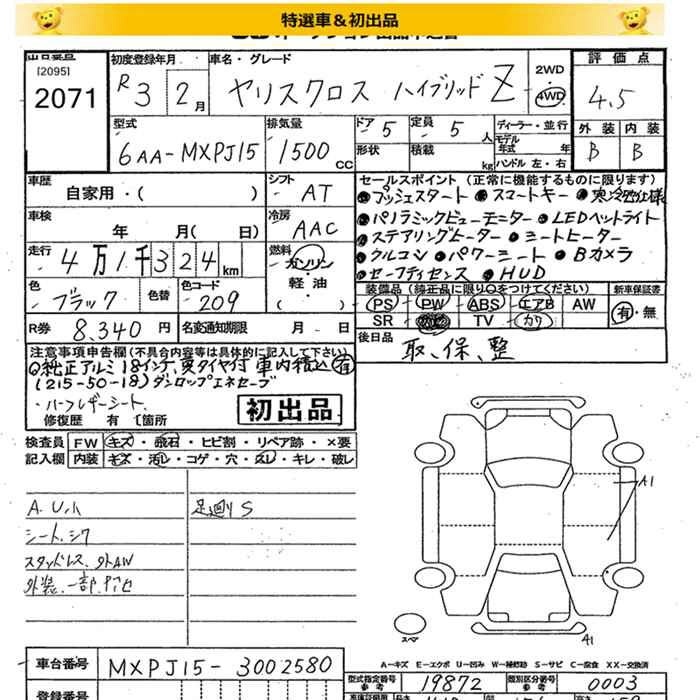 特選車＆初出品
出品番号
[2095]
2071
初度登録年月
R3 2月
車名・グレード
ヤリスクロス ハイブリッド Z
2WD
・
4WD
評価点
4.5
外装 内装
B B
型式
6AA-MXPJ15
排気量
1500 CC
ドア 5
定員 5 人
形状
積載 kg
ディーラー・並行
モデル年式 年
ハンドル 左・右
車歴
自家用・( )
シフト
AT
車検
年 月( 日)
冷房
AAC
走行
4万1千324km
燃料
ガソリン
軽・油
( )
色
ブラック
色替
色コード
209
R券 8,340円
名変通知期限 月 日
セールスポイント (正常に機能するものに限ります)
●プッシュスタート ●スマートキー ●寒冷地仕様
●パノラミックビューモニター ●LEDヘットライト
●ステアリングヒーター ●シートヒーター
●クルコン ●パワーシート ●Bカメラ
●セーフティセンス ●HUD
装備品 (純正品に限り○をつけてください)
PS PW ABS エアB AW
SR TV カワ
新車保証書
有・無
後日品
取、保、整
注意事項申告欄(不具合内容等は具体的に記入して下さい)
○純正アルミ18インチ、夏タイヤ付 車内積込 有
(215-50-18)ダンロップエネセーブ
・ハーフレザーシート.
初出品
修復歴 有 〔箇所
検査員 FW キズ・飛石・ヒビ割・リペア跡・×要
記入欄 内装 キズ・汚レ・コゲ・穴・スレ・キレ・破レ
A.U小
足廻りS
シート.シワ
スタッドレス、外AW
外装、一部.
A1
スペア
A1
A－キズ E－エクボ U－凹み W－補修跡 S－サビ C－腐食 XX－交換済
車台番号 MXPJ15-3002580
型式指定番号 参考 19872
類別区分番号 参考 0003
登録番号